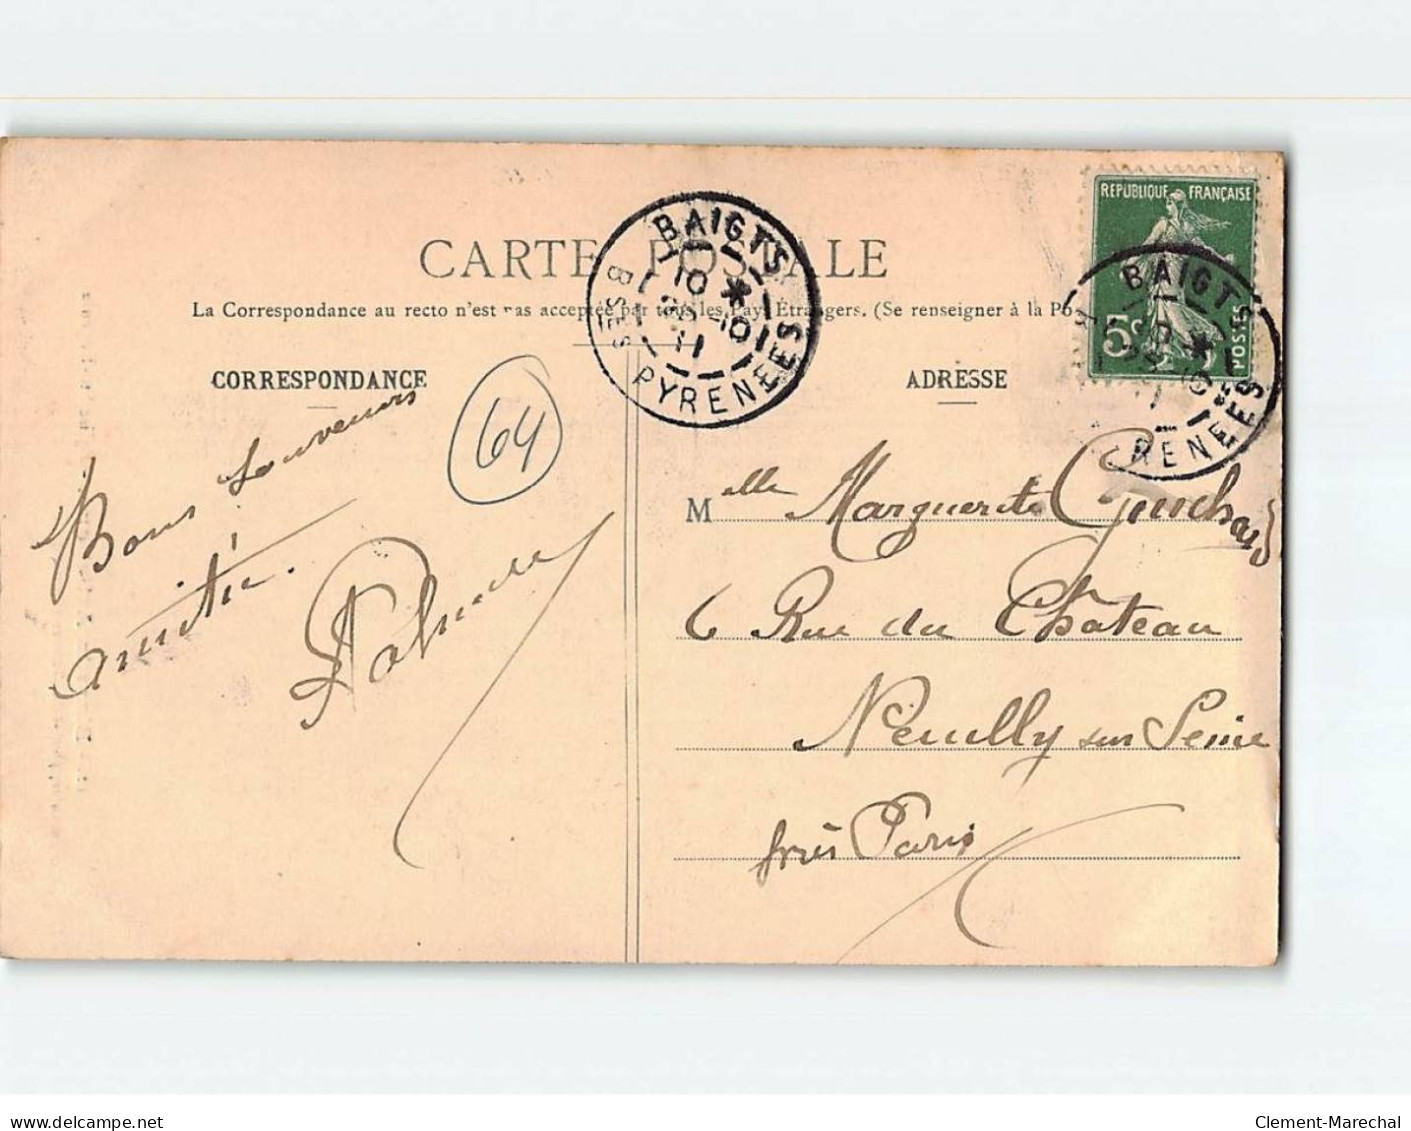 CARTE POSTALE
La Correspondance au recto n'est pas acceptée par tous les Pays Étrangers. (Se renseigner à la Po
CORRESPONDANCE
ADRESSE
REPUBLIQUE FRANÇAISE
5c
POSTES
BAIGTS
10 *
11
BSES PYRENEES
BAIGTS
PYRENEES
64
Bons souvenirs
amitié.
Melle Marguerite Guichard
6 Rue du Château
Neuilly sur Seine
près Paris
Clement-Marechal